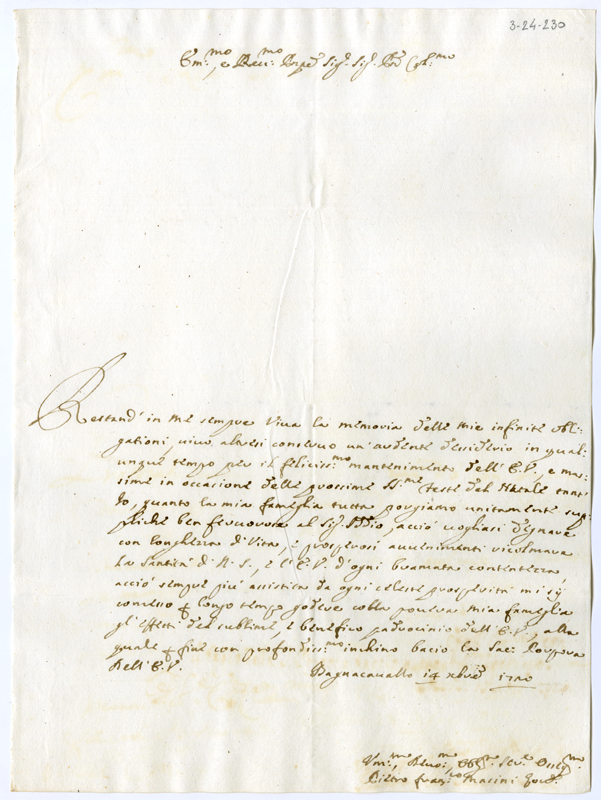 3-24-230
Em:mo, e Reu:mo Prpe Sig:r Sig:r Pne Col:mo
Restand' in me sempre viua la memoria delle mie infinite obli:
gationi, uiuo altresi continuo un'ardente desiderio in qual:
unque tempo per il feliciss:mo mantenimento dell'E.V., e mas:
sime in occasione delle prossime SS:me feste del Natale tant'
Io, quanto la mia famiglia tutta porgiamo unitamente sup:
pliche ben feruorose al Sig:r Iddio, acciò uogliasi degnare
con longhezza di Vita, e prosperosi auuenimenti ricolmare
La Santità di N. S., e l'E.V. d'ogni bramata contentezza,
acciò sempre più assistita da ogni celeste prosperità mi sij
concesso p longo tempo godere colla pouera mia famiglia
gl'effetti del sublime, e benefico padrocinio dell'E.V., alla
quale p fine con profondiss:mo inchino bacio la Sac: Porpora
Dell'E.V.
Bagnacauallo 14 xbre 1720
Vm:mo, Deuo:mo Obb:mo Ser:re Osseq:mo
Pietro Fran:co Masini